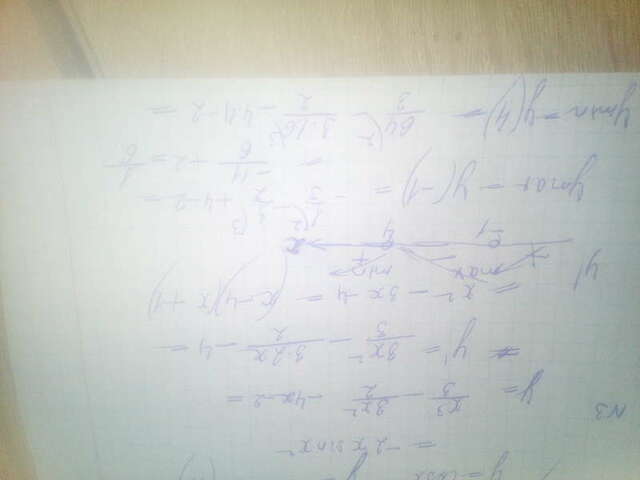 = -2x sin x²
N3
y = x³/3 - 3x²/2 - 4x - 2 =
y' = 3x²/3 - 3·2x/2 - 4 =
= x² - 3x - 4 = (x - 4)(x + 1)
y' + max - min +
-1 4 x
ymax = y(-1) = -1/3 - 3/2 + 4 - 2 =
= -11/6 + 2 = 1/6
ymin = y(4) = 64/3 - 3·16/2 - 4·4 - 2 =